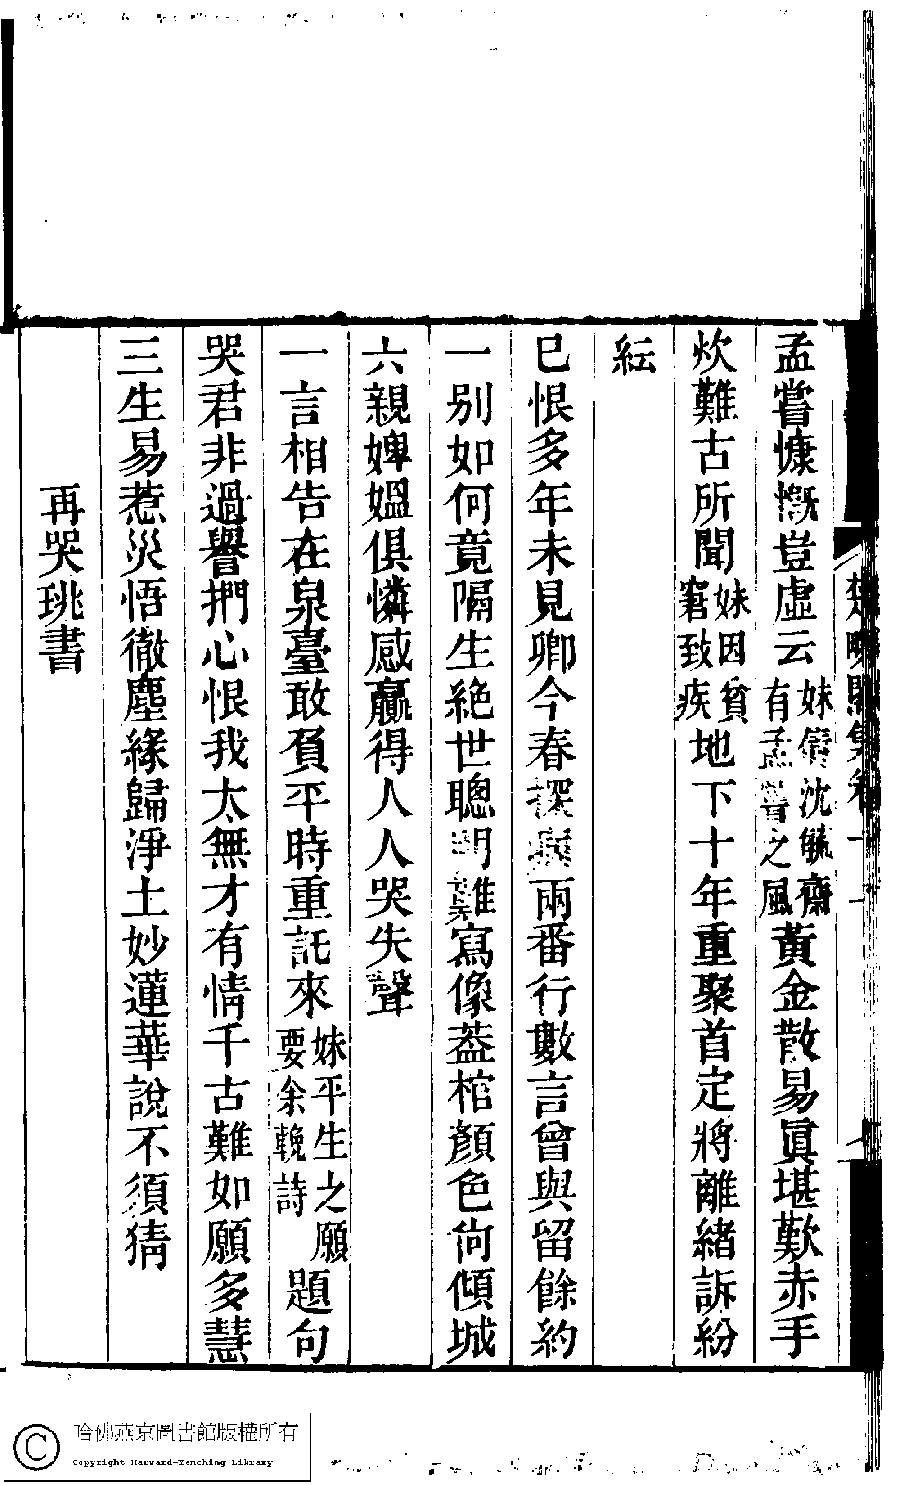 孟嘗慷慨豈虛云妹倩沈毓齋有孟嘗之風黃金散易眞堪歎赤手
炊難古所聞妹因貧窘致疾地下十年重聚首定將離緒訴紛
紜
已恨多年未見卿今春探病兩番行數言曾與留餘約
一別如何竟隔生絕世聰明難寫像蓋棺顏色尙傾城
六親婢媼俱憐感贏得人人哭失聲
一言相告在泉臺敢負平時重託來妹平生之願要余輓詩題句
哭君非過譽捫心恨我太無才有情千古難如願多慧
三生易惹災悟徹塵緣歸淨土妙蓮華說不須猜
再哭珧書
哈佛燕京圖書館版權所有
Copyright Harvard-Yenching Library